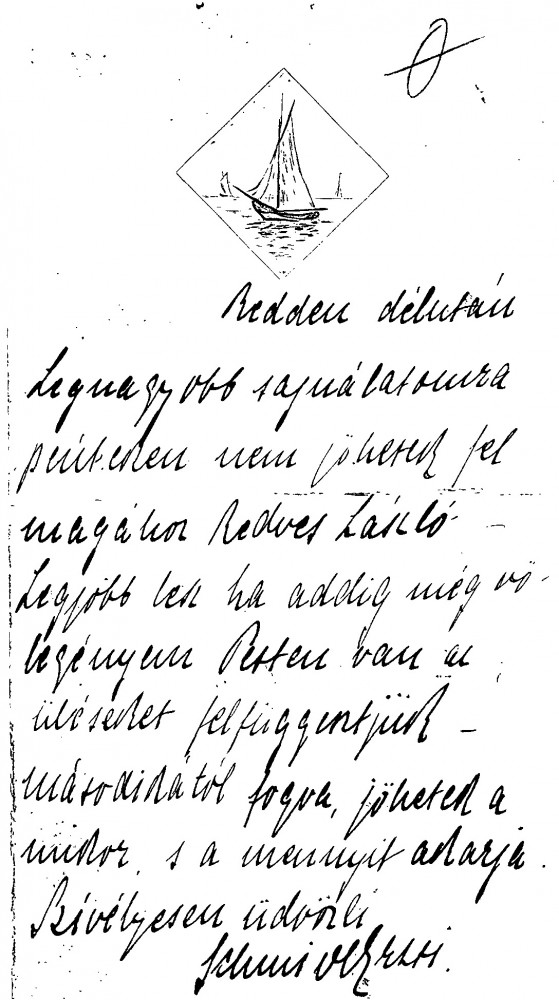 Kedden délután
Legnagyobb sajnálatomra
pénteken nem jöhetek fel
magához Kedves László –
Legjobb lesz ha addig még vő-
legényem Pesten van az
üléseket felfüggesztjük –
másodikától fogva, jöhetek a
mikor, s a mennyit akarja.
Szívélyesen üdvözli
Erzsi.